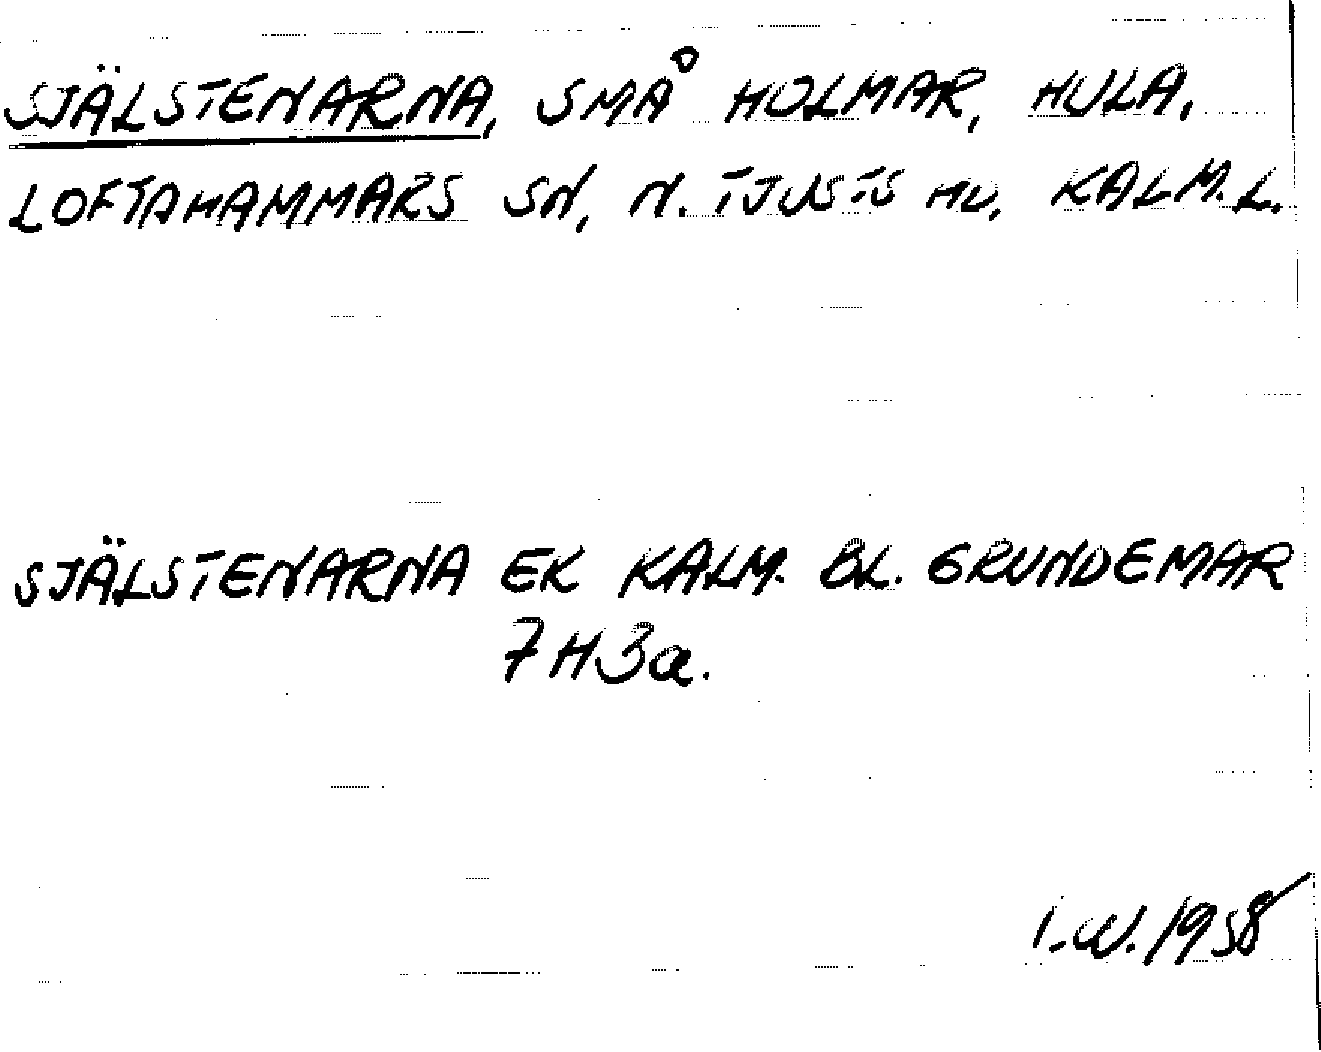 SJÄLSTENARNA, SMÅ HOLMAR, HULA,
LOFTAHAMMARS SN, N. TJUSTS HD, KALM. L.
SJÄLSTENARNA EK KALM. BL. GRUNDEMAR
7H3a.
I.W. 1958